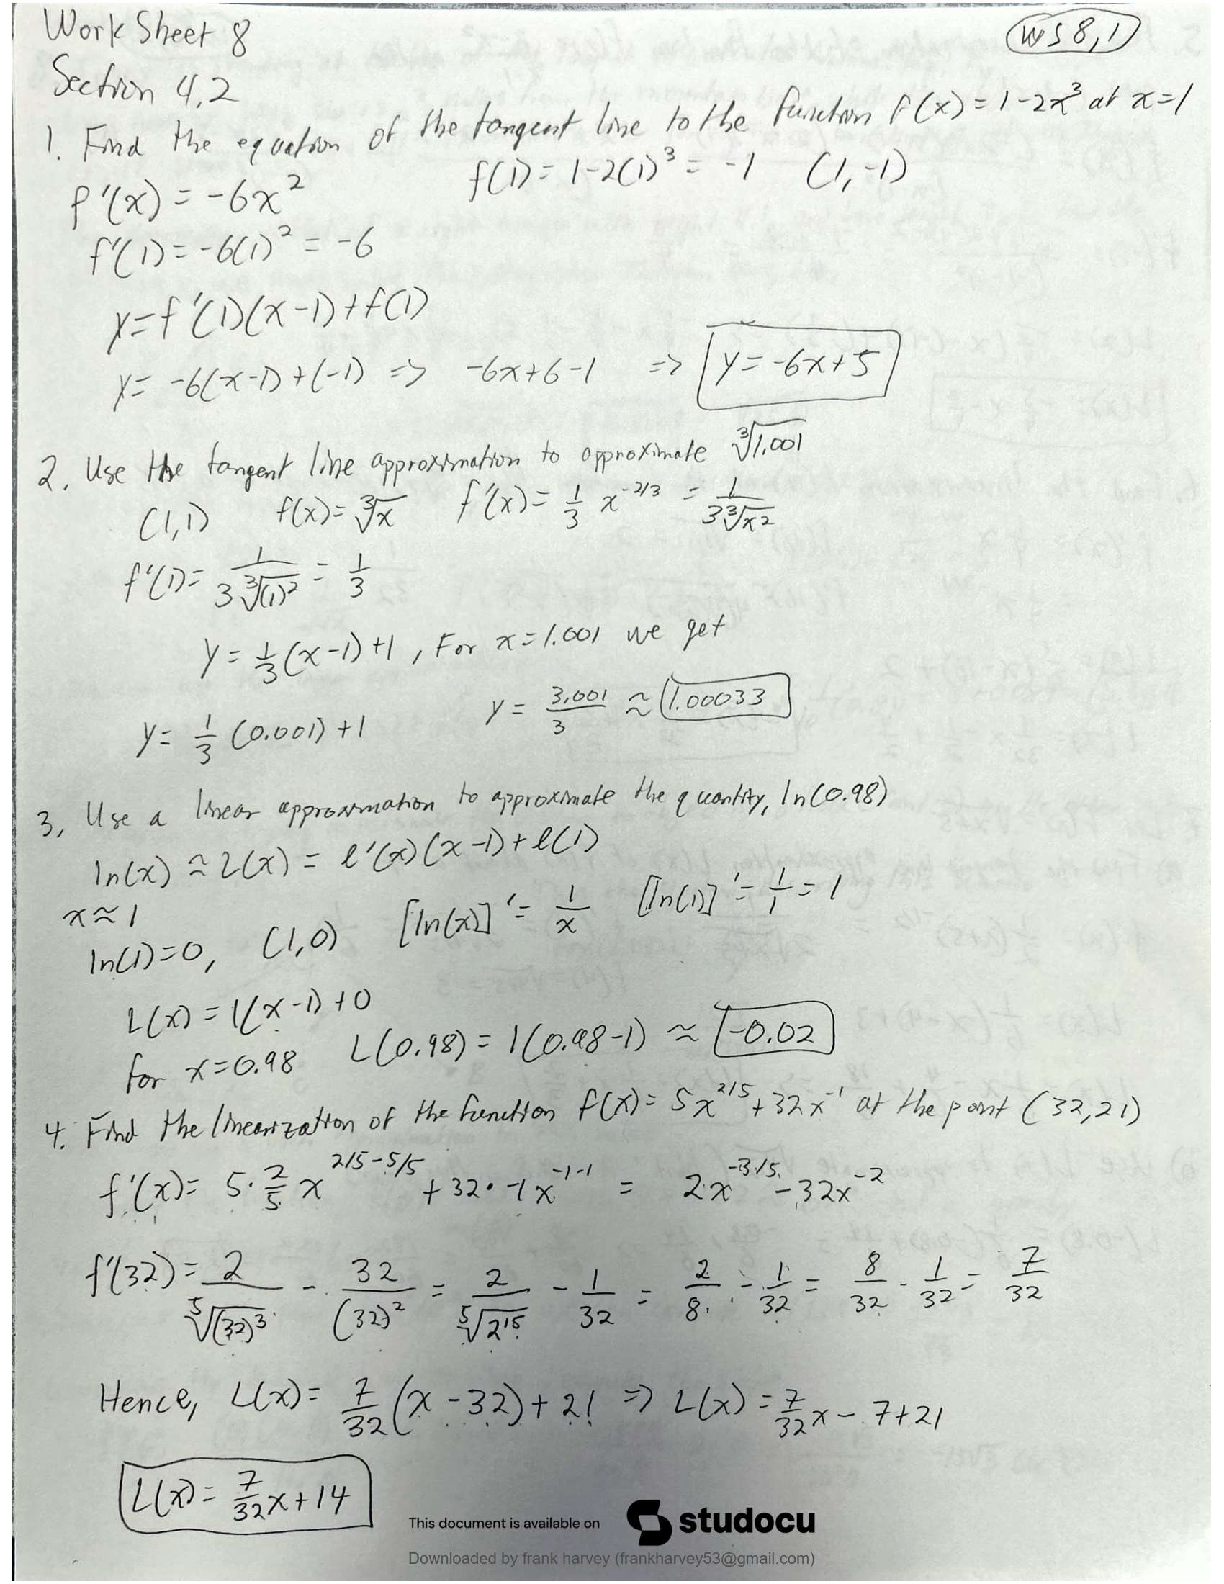 Work Sheet 8
WS 8,1
Section 4.2
1. Find the equation of the tangent line to the function f(x) = 1-2x³ at x=1
f'(x) = -6x² f(1) = 1-2(1)³ = -1 (1,-1)
f'(1) = -6(1)² = -6
y = f'(1)(x-1)+f(1)
y = -6(x-1)+(-1) => -6x+6-1 => y = -6x+5
2. Use the tangent line approximation to approximate ∛1.001
(1,1) f(x) = ∛x f'(x) = 1/3 x^(-2/3) = 1/(3∛x²)
f'(1) = 1/(3∛(1)²) = 1/3
y = 1/3(x-1)+1, For x=1.001 we get
y = 1/3 (0.001)+1 y = 3.001/3 ≈ 1.00033
3, Use a linear approximation to approximate the quantity, ln(0.98)
ln(x) ≈ L(x) = l'(x)(x-1)+l(1)
x≈1
ln(1)=0, (1,0) [ln(x)]' = 1/x [ln(1)]' = 1/1 = 1
L(x) = 1(x-1)+0
for x=0.98 L(0.98) = 1(0.98-1) ≈ -0.02
4. Find the linearization of the function f(x) = 5x^(2/5)+32x^(-1) at the point (32,21)
f'(x) = 5·2/5 x^(2/5-5/5) + 32·-1x^(-1-1) = 2x^(-3/5) - 32x^(-2)
f'(32) = 2/⁵√(32)³ - 32/(32)² = 2/⁵√2¹⁵ - 1/32 = 2/8 - 1/32 = 8/32 - 1/32 = 7/32
Hence, L(x) = 7/32(x-32)+21 => L(x) = 7/32x - 7+21
L(x) = 7/32x+14
This document is available on studocu
Downloaded by frank harvey (frankharvey53@gmail.com)